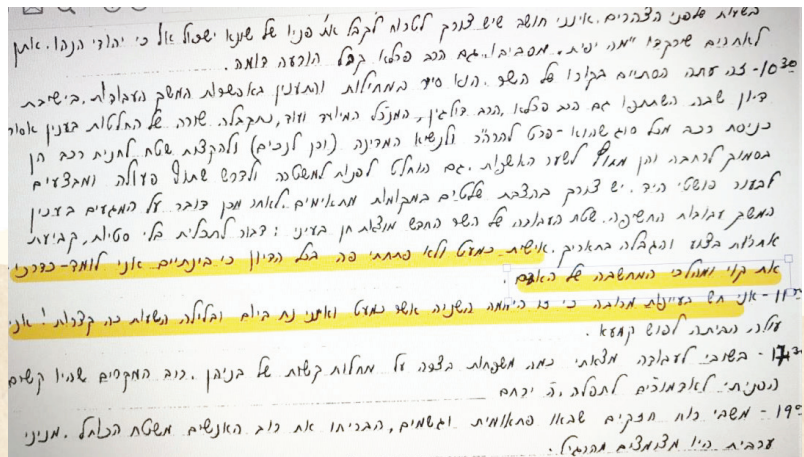 בשעות שלפני הצהרים. אינני חושב שיש צורך לטרוח לקבל את פניו של שונא ישראל אף כי יהודי הנהו. אתן
לאחרים שירקדו "מה יפית" מסביבו. גם הרב פרלא קבל הורעה דומה.
10³⁰ - זה עתה הסתיים בקורו של השר. הוא סייר במחילות והתענין באפשרות המשך העבודות. בישיבת
דיון שבה השתתפו גם הרב פרלא, הרב דוליגין, המנכ"ל המיועד ועוד, נתקבלה שורה של החלטות בענין אסור
כניסת רכב מכל סוג שהוא - פרט להרה"ר ולנשיא המדינה (וכן לנכים) ולהקצות שטח לחנית רכב הן
בסמוך לרחבה והן מחוץ לשער האשפות. גם הוחלט לפנות למשטרה ולדרש שתוף פעולה ומבצעים
לבעור פושטי היד. יש צורך בהצבת שלטים במקומות מתאימים. לאחר מכן דובר על המגעים בענין
המשך עבודות החשיפה. שטת העבודה של השר החדש מוצאת חן בעיני: דבור לתכלית בלי סטיות, קביעת
אחריות בצוע והגבלה בתאריך. אישית כמעט ולא פתחתי פה בכל הדיון כי בינתיים אני לומד - כדרכי
את קוי ומהלכי המחשבה של האדם.
11 - אני חש בעייפות מרובה כי זו היממה השניה אשר כמעט ואינני נח ביום ובלילה השעות כה קצרות! אני
עולה הביתה לפוש קמעא.
17 - בשובי לעבודה מצאתי כמה משפחות בצפה על מחלות קשות של בניהן. רוב המקרים שהיו קשים
הפניתי לאדמורים לתפלה. ה' ירחם
19⁰ - משבי רוח חזקים שבאו פתאומית וגשמים, הבריחו את רוב האנשים משטח הכותל. מניני
ערבית היו מצומצמים מהרגיל.